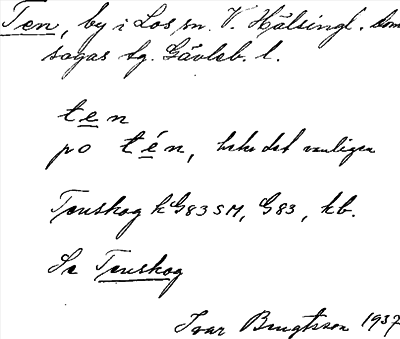 Ten, by i Los sn. V. Hälsingl. dom
sagas tg. Gävleb. l.
ten
po tén, heter det vanligen
Tenskog k G83 SM, G83, kb.
Se Tenskog
Ivar Bengtsson 1937